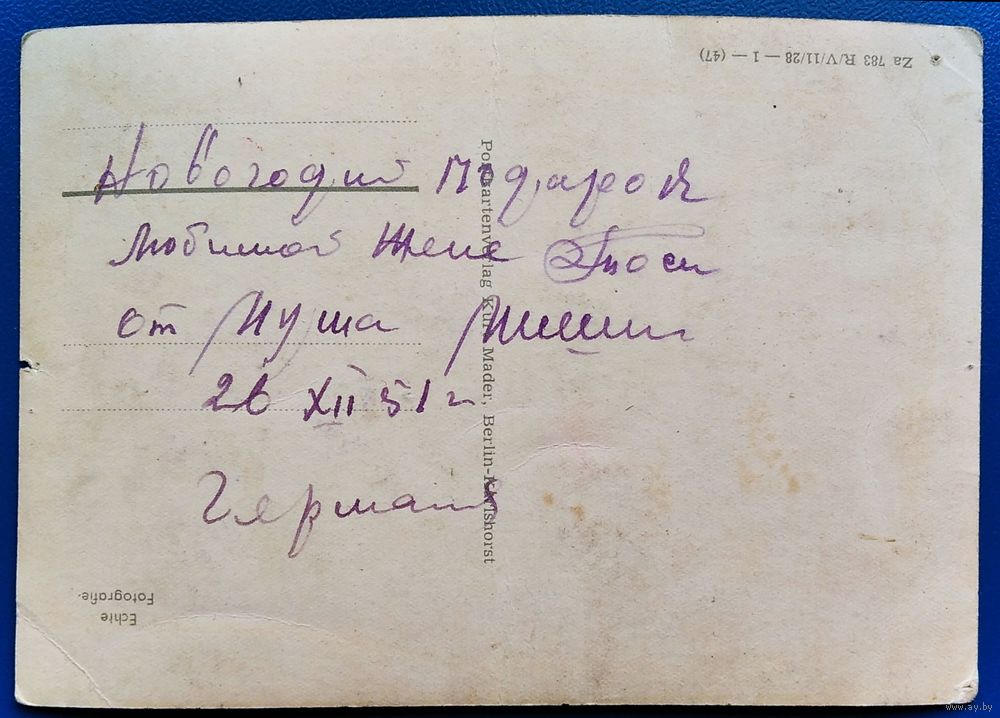 Za 783 R/V/11/28 — 1 — (47)
Новогодий подарок
любимой жене Тоси
от Муша Миши
26 XII 51 г
Германи
Postkartenverlag Kurt Mader, Berlin-Karlshorst
Echte
Fotografie.
www.ay.by